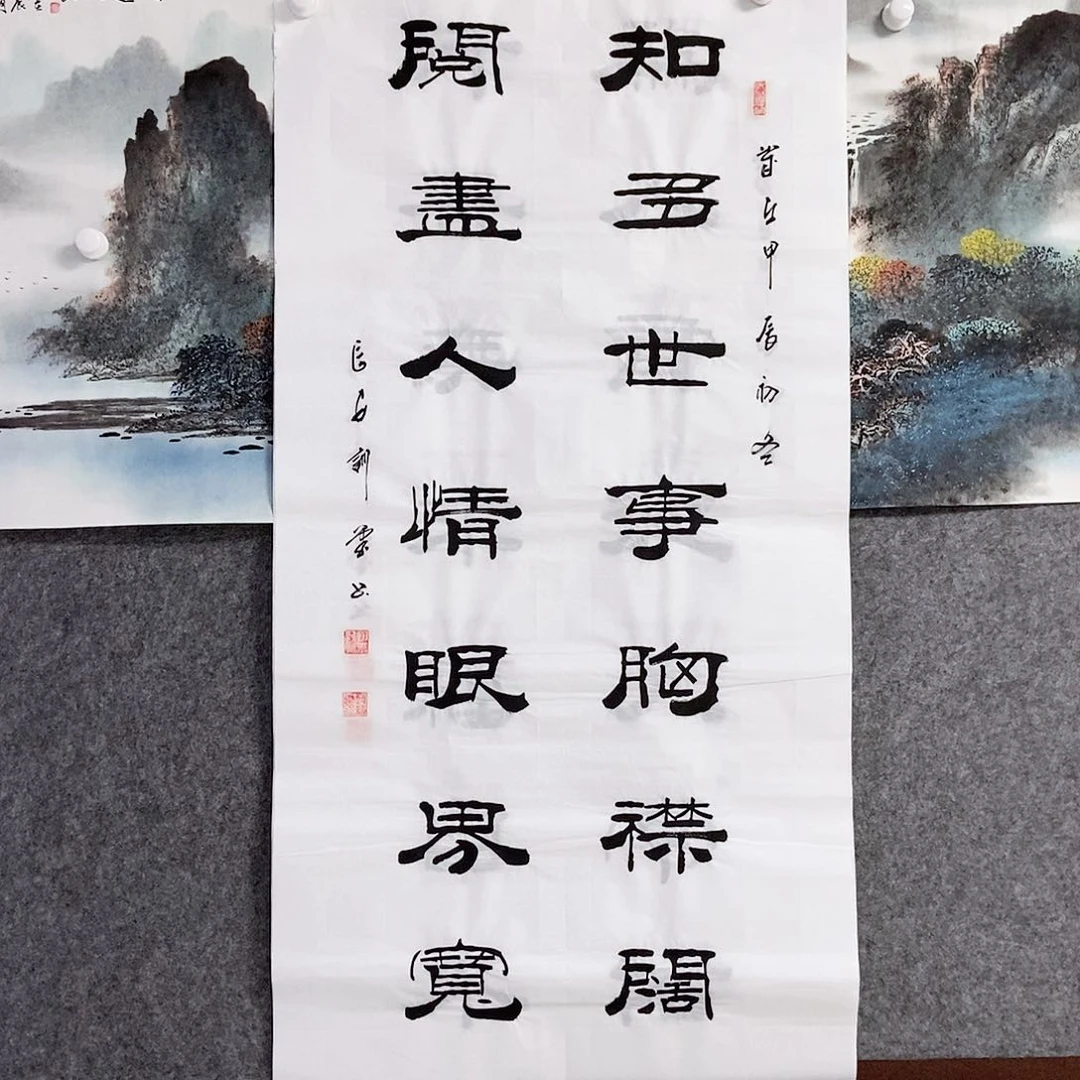 知多世事胸襟闊
閱盡人情眼界寬
歲在甲辰初冬